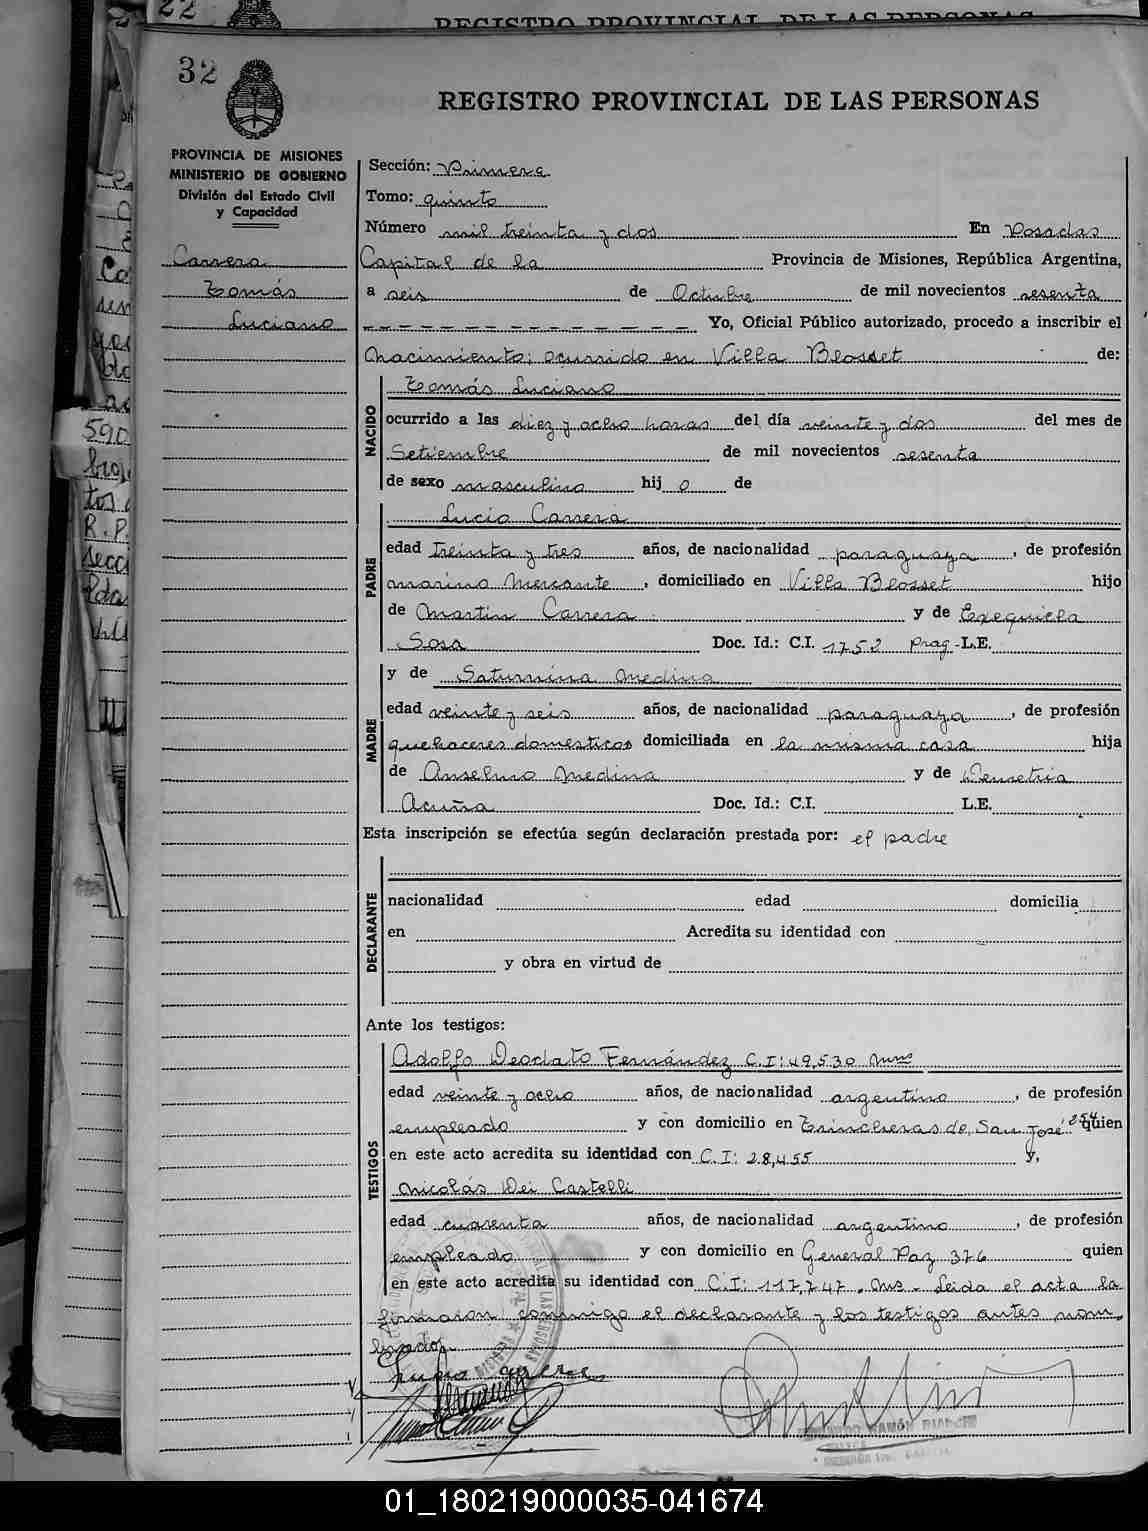 22
REGISTRO PROVINCIAL DE LAS PERSONAS
32
REGISTRO PROVINCIAL DE LAS PERSONAS
PROVINCIA DE MISIONES
MINISTERIO DE GOBIERNO
División del Estado Civil
y Capacidad
Carrera
Tomás
Luciano
Sección: Primera
Tomo: quinto
Número mil treinta y dos En Posadas
Capital de la Provincia de Misiones, República Argentina,
a seis de Octubre de mil novecientos sesenta
Yo, Oficial Público autorizado, procedo a inscribir el
Nacimiento: ocurrido en Villa Blosset de:
NACIDO
Tomás Luciano
ocurrido a las diez y ocho horas del día veinte y dos del mes de
Setiembre de mil novecientos sesenta
de sexo masculino hij o de
PADRE
Lucio Carrera
edad treinta y tres años, de nacionalidad paraguaya, de profesión
marino mercante, domiciliado en Villa Blosset hijo
de Martín Carrera y de Exequiela
Sosa Doc. Id.: C.I. 1752 Prag - L.E.
MADRE
y de Saturnina Medina
edad veinte y seis años, de nacionalidad paraguaya, de profesión
quehaceres domesticos domiciliada en la misma casa hija
de Anselmo Medina y de Demetria
Acuña Doc. Id.: C.I. L.E.
Esta inscripción se efectúa según declaración prestada por: el padre
DECLARANTE
nacionalidad edad domicilia
en Acredita su identidad con
y obra en virtud de
Ante los testigos:
TESTIGOS
Adolfo Deodato Fernández C.I: 49,530 Mns
edad veinte y ocho años, de nacionalidad argentino, de profesión
empleado y con domicilio en Trincheras de San José 254 quien
en este acto acredita su identidad con C.I: 28,455 y,
Nicolás Dei Castelli
edad cuarenta años, de nacionalidad argentino, de profesión
empleado y con domicilio en General Paz 376 quien
en este acto acredita su identidad con C.I: 117,747. Mns - Leida el acta la
firmaron conmigo el declarante y los testigos antes nom-
brados.
RAMÓN
01_180219000035-041674